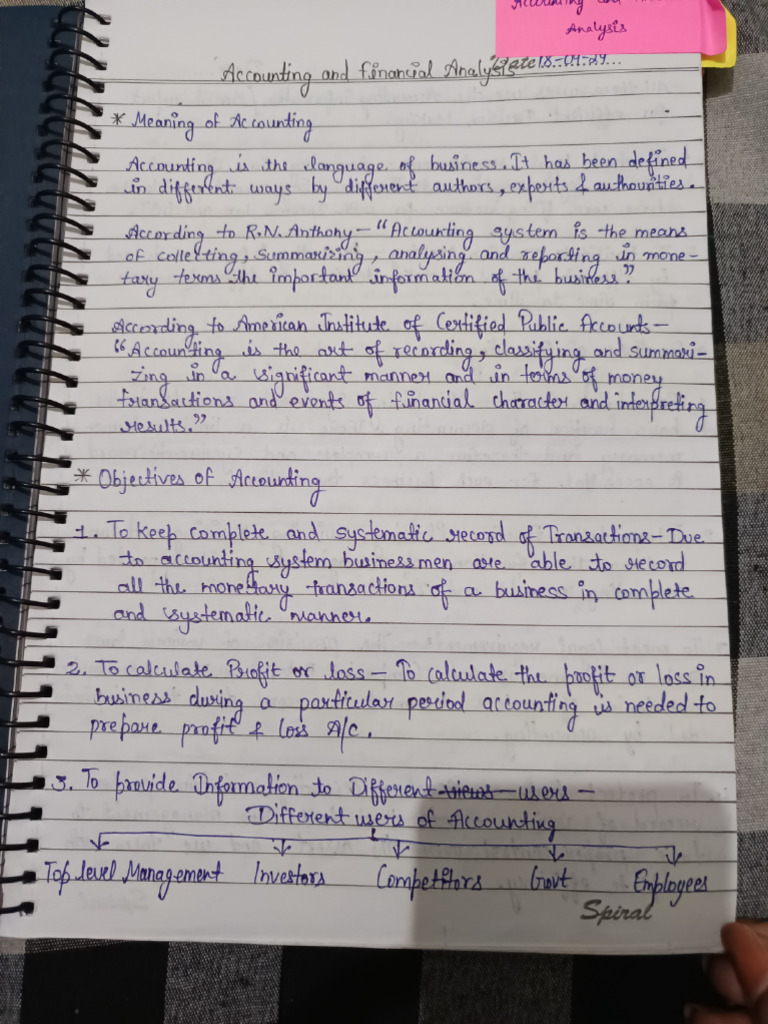 Accounting and
Analysis
Accounting and financial Analysis
Date 18.-01-24...
* Meaning of Accounting
Accounting is the language of business. It has been defined
in different ways by different authors, experts & authounities.
According to R.N. Anthony- "Accounting system is the means
of collecting, summarizing, analysing and reporting in mone-
tary terms the important information of the business."
According to American Institute of Certified Public Accounts-
"Accounting is the art of recording, classifying and summari-
zing in a significant manner and in terms of money
transactions and events of financial character and interpreting
results."
* Objectives of Accounting
1. To keep complete and systematic record of Transactions- Due
to accounting system businessmen are able to record
all the monetary transactions of a business in complete
and systematic manner.
2. To calculate Profit or loss- To calculate the profit or loss in
business during a particular period accounting is needed to
prepare profit & loss A/C.
3. To provide Information to Different views users-
Different users of Accounting
Top level Management Investors Competitors Govt Employees
Spiral